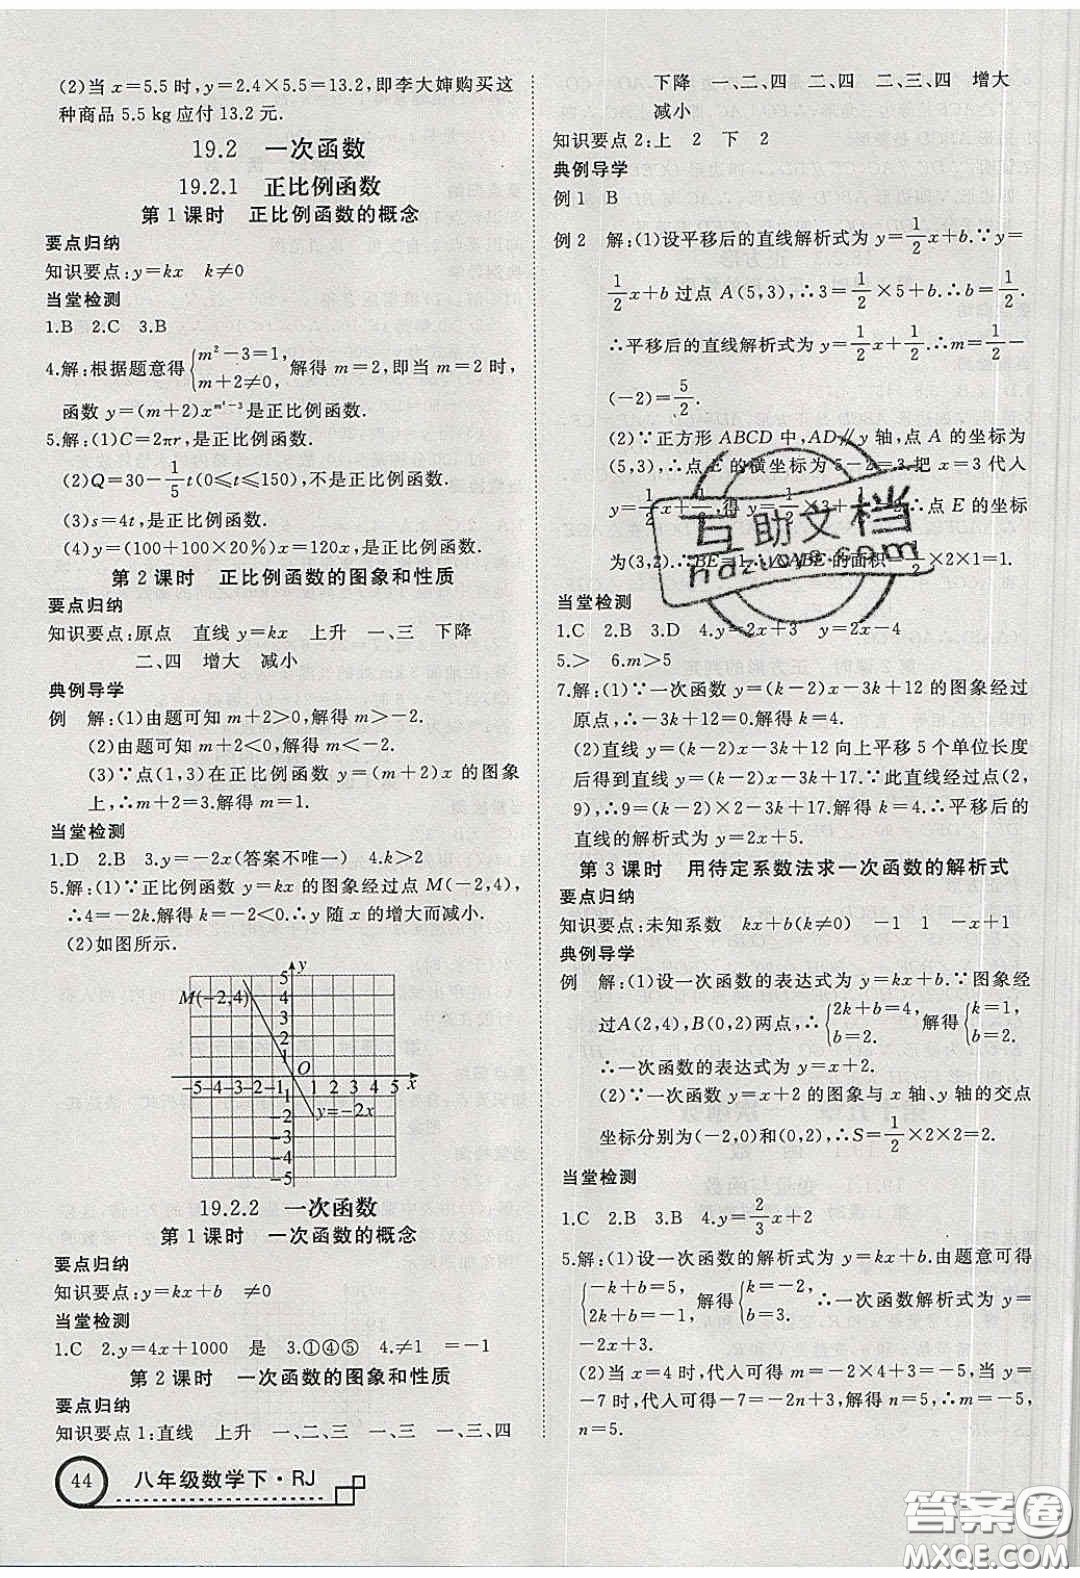 (2)当 x=5.5 时,y=2.4×5.5=13.2,即李大婶购买这
种商品 5.5 kg 应付 13.2 元.
19.2 一次函数
19.2.1 正比例函数
第 1 课时 正比例函数的概念
要点归纳
知识要点:y=kx k≠0
当堂检测
1.B 2.C 3.B
4.解:根据题意得{m²-3=1, m+2≠0, 解得 m=2,即当 m=2 时,
函数 y=(m+2)x^{m²-3}是正比例函数.
5.解:(1)C=2πr,是正比例函数.
(2)Q=30-1/5 t(0≤t≤150),不是正比例函数.
(3)s=4t,是正比例函数.
(4)y=(100+100×20%)x=120x,是正比例函数.
第 2 课时 正比例函数的图象和性质
要点归纳
知识要点:原点 直线 y=kx 上升 一、三 下降
二、四 增大 减小
典例导学
例 解:(1)由题可知 m+2>0,解得 m>-2.
(2)由题可知 m+2<0,解得 m<-2.
(3)∵点(1,3)在正比例函数 y=(m+2)x 的图象
上,∴m+2=3.解得 m=1.
当堂检测
1.D 2.B 3.y=-2x(答案不唯一) 4.k>2
5.解:(1)∵正比例函数 y=kx 的图象经过点 M(-2,4),
∴4=-2k.解得 k=-2.∴y 随 x 的增大而减小.
(2)如图所示.
y
5
M(-2,4) 4
3
2
1
O
-5 -4 -3 -2 -1 1 2 3 4 5 x
-1
-2 y=-2x
-3
-4
-5
19.2.2 一次函数
第 1 课时 一次函数的概念
要点归纳
知识要点:y=kx+b ≠0
当堂检测
1.C 2.y=4x+1000 是 3.①④⑤ 4.≠1 =-1
第 2 课时 一次函数的图象和性质
要点归纳
知识要点 1:直线 上升 一、二、三 一、三 一、三、四
44 八年级数学下·RJ
下降 一、二、四 二、四 二、三、四 增大
减小
知识要点 2:上 2 下 2
典例导学
例 1 B
例 2 解:(1)设平移后的直线解析式为 y=1/2 x+b.∵y=
1/2 x+b 过点 A(5,3),∴3=1/2×5+b.∴b=1/2.
∴平移后的直线解析式为 y=1/2 x+1/2.∴m=1/2-
(-2)=5/2.
(2)∵正方形 ABCD 中,AD∥y 轴,点 A 的坐标为
(5,3),∴点 E 的横坐标为 5-2=3.把 x=3 代入
y=1/2 x+1/2,得 y=1/2×3+1/2=2.∴点 E 的坐标
为(3,2).∴BE=1.∴△ABE 的面积=1/2×2×1=1.
当堂检测
1.C 2.B 3.D 4.y=2x+3 y=2x-4
5.> 6.m>5
7.解:(1)∵一次函数 y=(k-2)x-3k+12 的图象经过
原点,∴-3k+12=0.解得 k=4.
(2)直线 y=(k-2)x-3k+12 向上平移 5 个单位长度
后得到直线 y=(k-2)x-3k+17.∵此直线经过点(2,
9),∴9=(k-2)×2-3k+17.解得 k=4.∴平移后的
直线的解析式为 y=2x+5.
第 3 课时 用待定系数法求一次函数的解析式
要点归纳
知识要点:未知系数 kx+b(k≠0) -1 1 -x+1
典例导学
例 解:(1)设一次函数的表达式为 y=kx+b.∵图象经
过A(2,4),B(0,2)两点,∴{2k+b=4, b=2. 解得{k=1, b=2.
∴一次函数的表达式为 y=x+2.
(2)∵一次函数 y=x+2 的图象与 x 轴、y 轴的交点
坐标分别为(-2,0)和(0,2),∴S=1/2×2×2=2.
当堂检测
1.C 2.B 3.B 4.y=2/3 x+2
5.解:(1)设一次函数的解析式为 y=kx+b.由题意可得
{-k+b=5, 2k+b=-1, 解得{k=-2, b=3. ∴一次函数解析式为 y=
-2x+3.
(2)当 x=4 时,代入可得 m=-2×4+3=-5,当 y=
-7 时,代入可得-7=-2n+3,解得 n=5,∴m=-5,
n=5.
互助文档
hdzuoye.com
答案圈
MXQE.COM